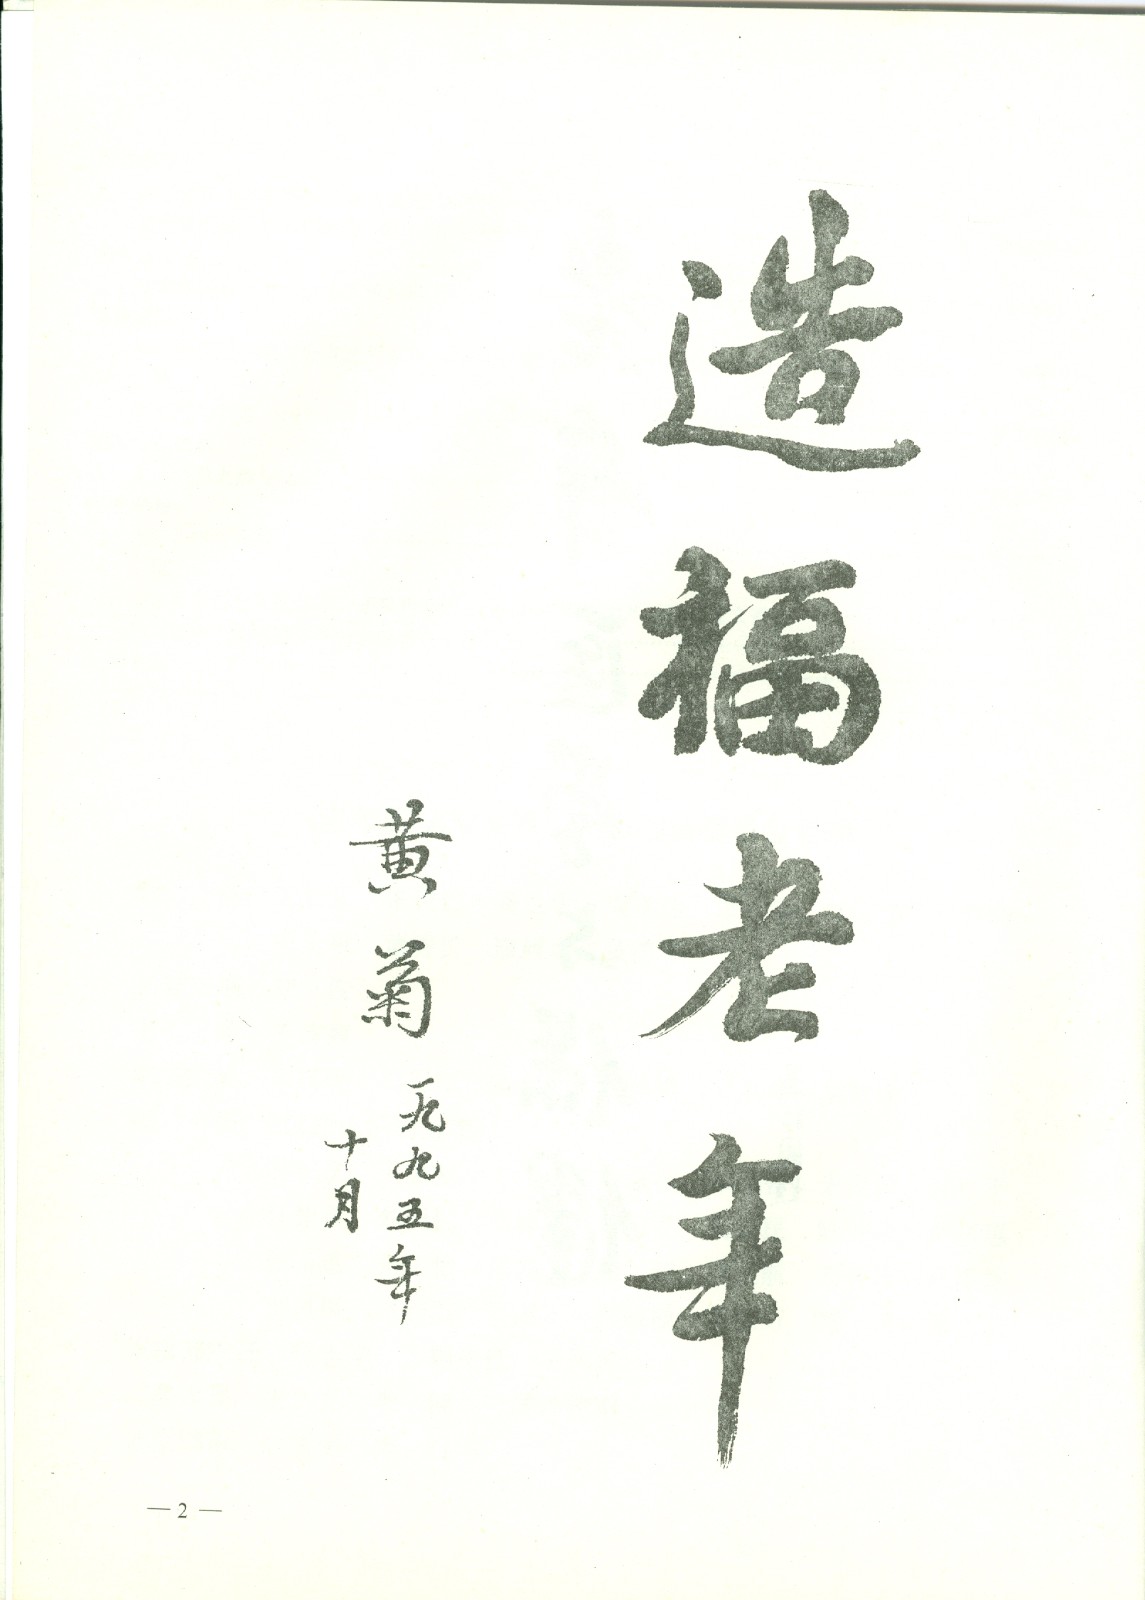 造福老年
黄菊
一九九五年
十月
— 2 —